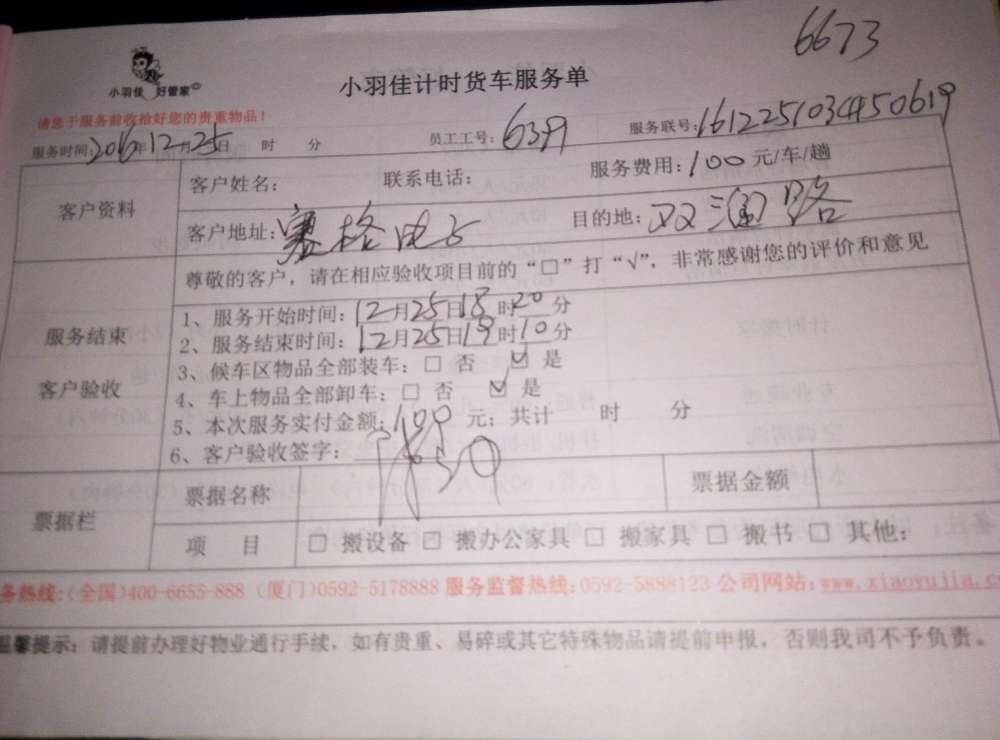 6673
小羽佳 好管家
小羽佳计时货车服务单
请您于服务前收检好您的贵重物品！
服务时间：2016年12月25日 时 分 员工工号：6399 服务联号：1612251034450619
客户资料
客户姓名： 联系电话： 服务费用：100元/车/趟
客户地址：赛格电子 目的地：双涵路
尊敬的客户，请在相应验收项目前的“□”打“√”，非常感谢您的评价和意见
服务结束
客户验收
1、服务开始时间：12月25日18时20分
2、服务结束时间：12月25日19时10分
3、候车区物品全部装车：□ 否 ☑ 是
4、车上物品全部卸车：□ 否 ☑ 是
5、本次服务实付金额：100元；共计 时 分
6、客户验收签字：
票据栏
票据名称 票据金额
项 目 □ 搬设备 □ 搬办公家具 □ 搬家具 □ 搬书 □ 其他：
务热线：(全国)400-6655-888 (厦门)0592-5178888 服务监督热线：0592-5888123 公司网站：www.xiaoyujia.c
温馨提示：请提前办理好物业通行手续，如有贵重、易碎或其它特殊物品请提前申报，否则我司不予负责。